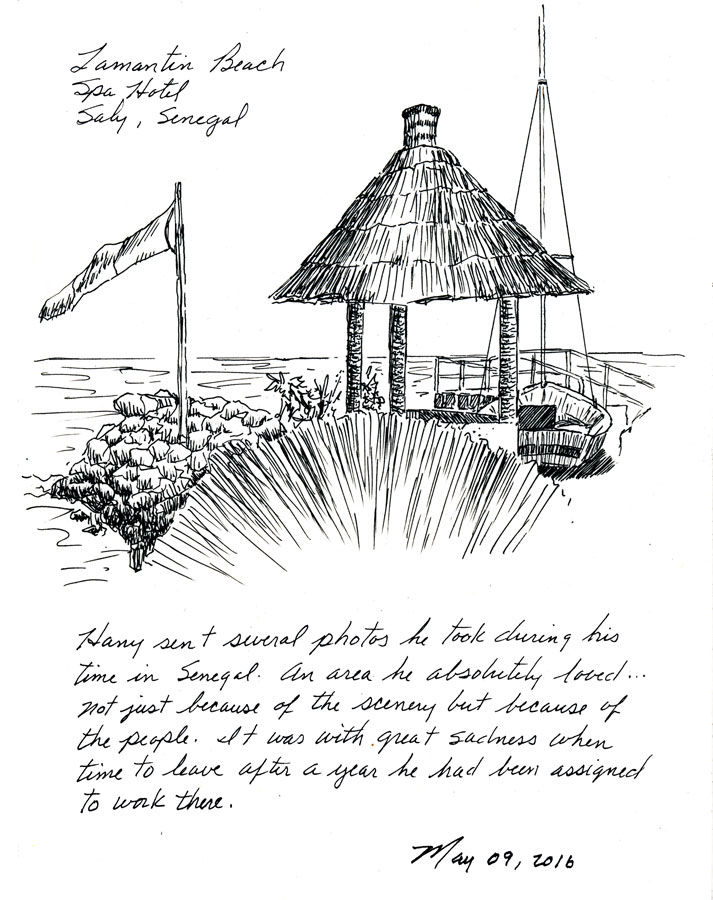 Lamantin Beach
Spa Hotel
Saly, Senegal
Hany sent several photos he took during his
time in Senegal. An area he absolutely loved...
not just because of the scenery but because of
the people. It was with great sadness when
time to leave after a year he had been assigned
to work there.
May 09, 2016